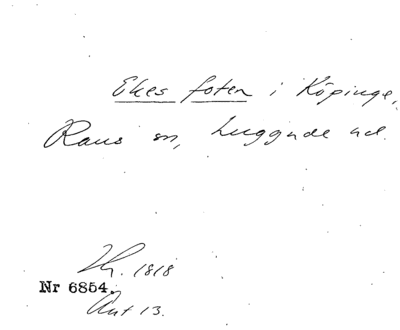 Ekes foten i Köpinge,
Raus sn, Luggude hd.
Th. 1818
Nr 6854.
Ant 13.